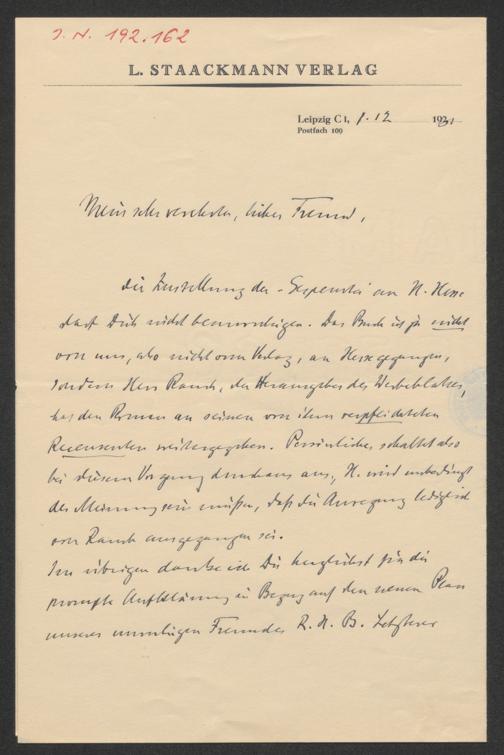 J. N. 192.162
L. STAACKMANN VERLAG
Leipzig C 1, 1. 12 1931
Postfach 109
Mein sehr verehrter, lieber Freund,
die Zustellung der "Gespenster" an H. Hesse
darf Dich nicht beunruhigen. Das Buch ist ja nicht
von uns, also nicht vom Verlag, an Hesse gegangen,
sondern Herr Rauch, der Herausgeber des Werbeblattes,
hat den Roman an seinen von ihm verpflichteten
Recensenten weitergegeben. Persönliches schaltet also
bei diesem Vorgang durchaus aus, H. wird unbedingt
der Meinung sein müssen, daß die Anregung lediglich
von Rauch ausgegangen sei.
Im übrigen danke ich Dir herzlichst für die
prompte Aufklärung in Bezug auf den neuen Plan
unseres unruhigen Freundes R. H. B. Letzterer